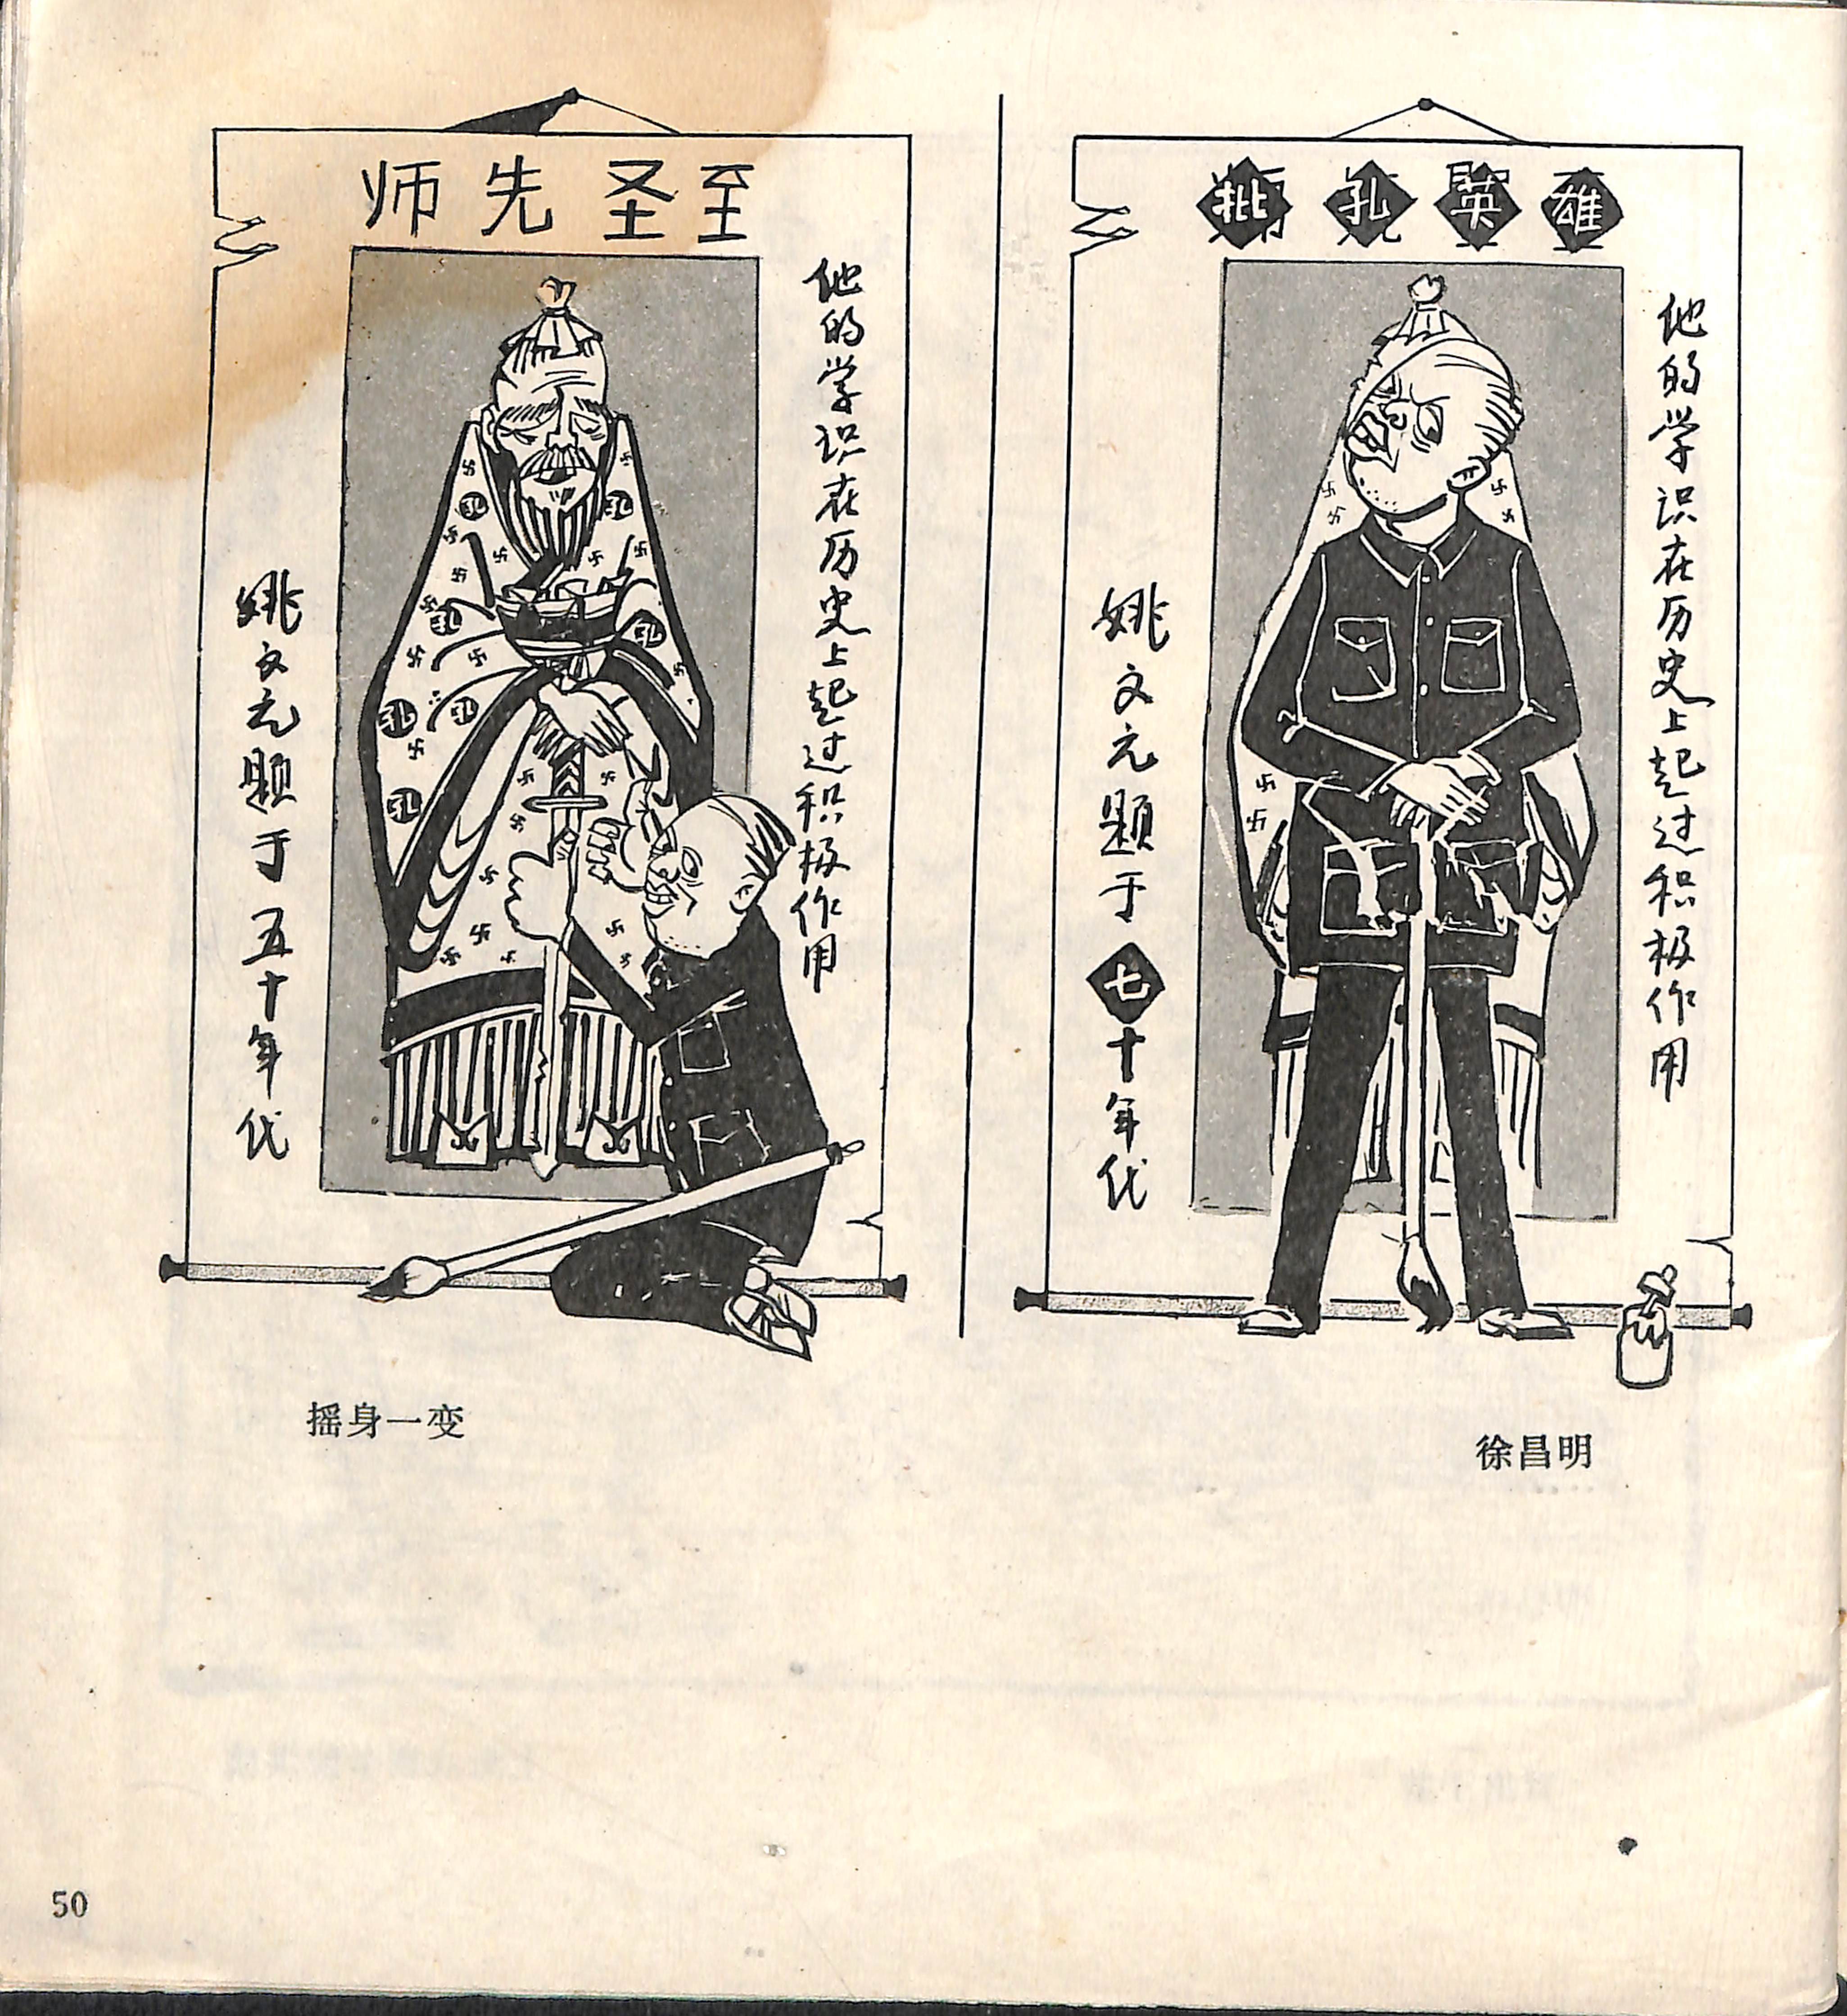 至圣先师
他的学识在历史上起过积极作用
姚文元题于五十年代
孔
孔
孔
孔
孔
孔
孔
批孔英雄
他的学识在历史上起过积极作用
姚文元题于七十年代
摇身一变
徐昌明
50